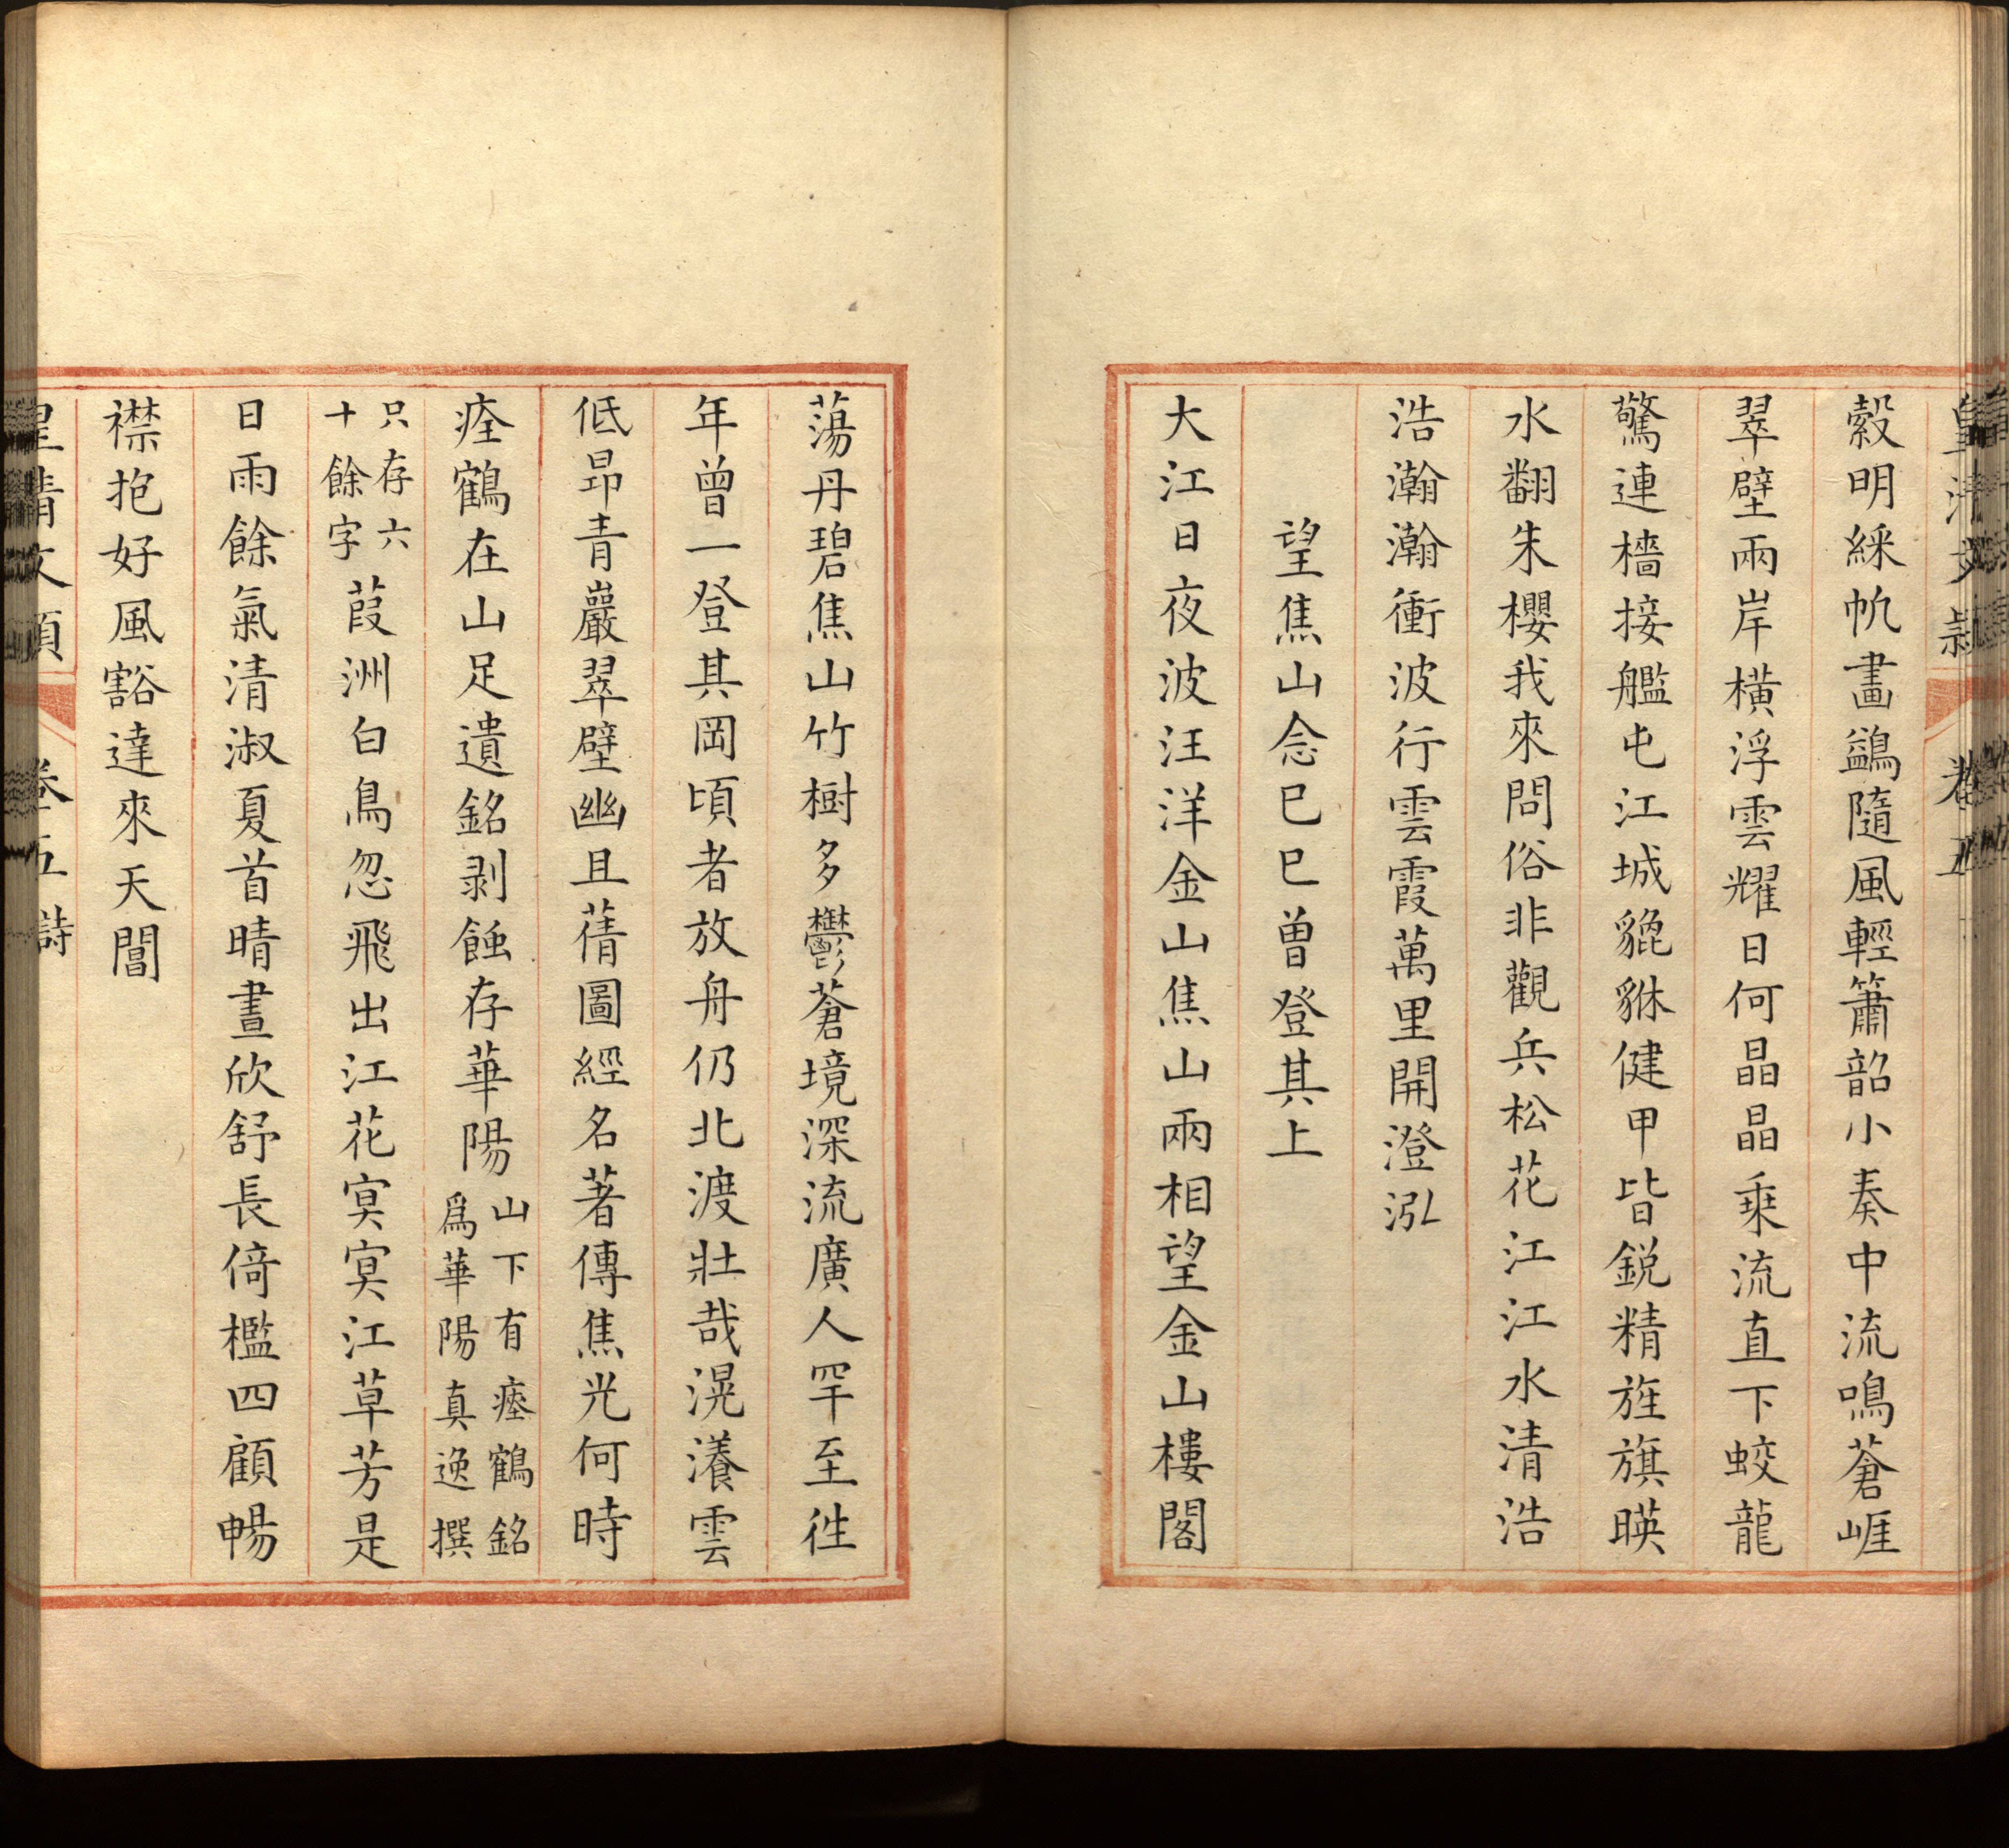 皇清文穎 卷五
縠明綵帆畫鷁隨風輕簫韶小奏中流鳴蒼崕
翠壁兩岸橫浮雲耀日何晶晶乗流直下蛟龍
驚連檣接艦屯江城貔貅健甲皆銳精旌旗暎
水翻朱櫻我來問俗非觀兵松花江江水清浩
浩瀚瀚衝波行雲霞萬里開澄泓
望焦山念己巳曾登其上
大江日夜波汪洋金山焦山兩相望金山樓閣
蕩丹碧焦山竹樹多鬱蒼境深流廣人罕至徃
年曾一登其岡頃者放舟仍北渡壯哉滉瀁雲
低昻青巖翠壁幽且蒨圖經名著傳焦光何時
瘞鶴在山足遺銘剥蝕存華陽
山下有瘞鶴銘
爲華陽真逸撰
只存六
十餘字
葭洲白鳥忽飛出江花㝠㝠江草芳是
日雨餘氣清淑夏首晴晝欣舒長倚檻四顧暢
襟抱好風豁達來天閶
皇清文穎 卷五 詩